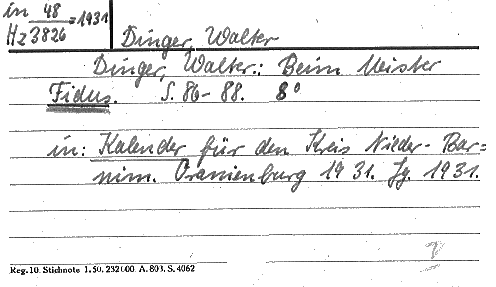 in 48
Hz 3826 =1931
Dinger, Walter
Dinger, Walter.: Beim Meister
Fidus. S. 86-88. 8°
in: Kalender für den Kreis Nieder-Bar=
nim. Oranienburg 1931. Jg. 1931.
Reg. 10. Stichnote 1. 50. 232000. A. 803. S. 4062